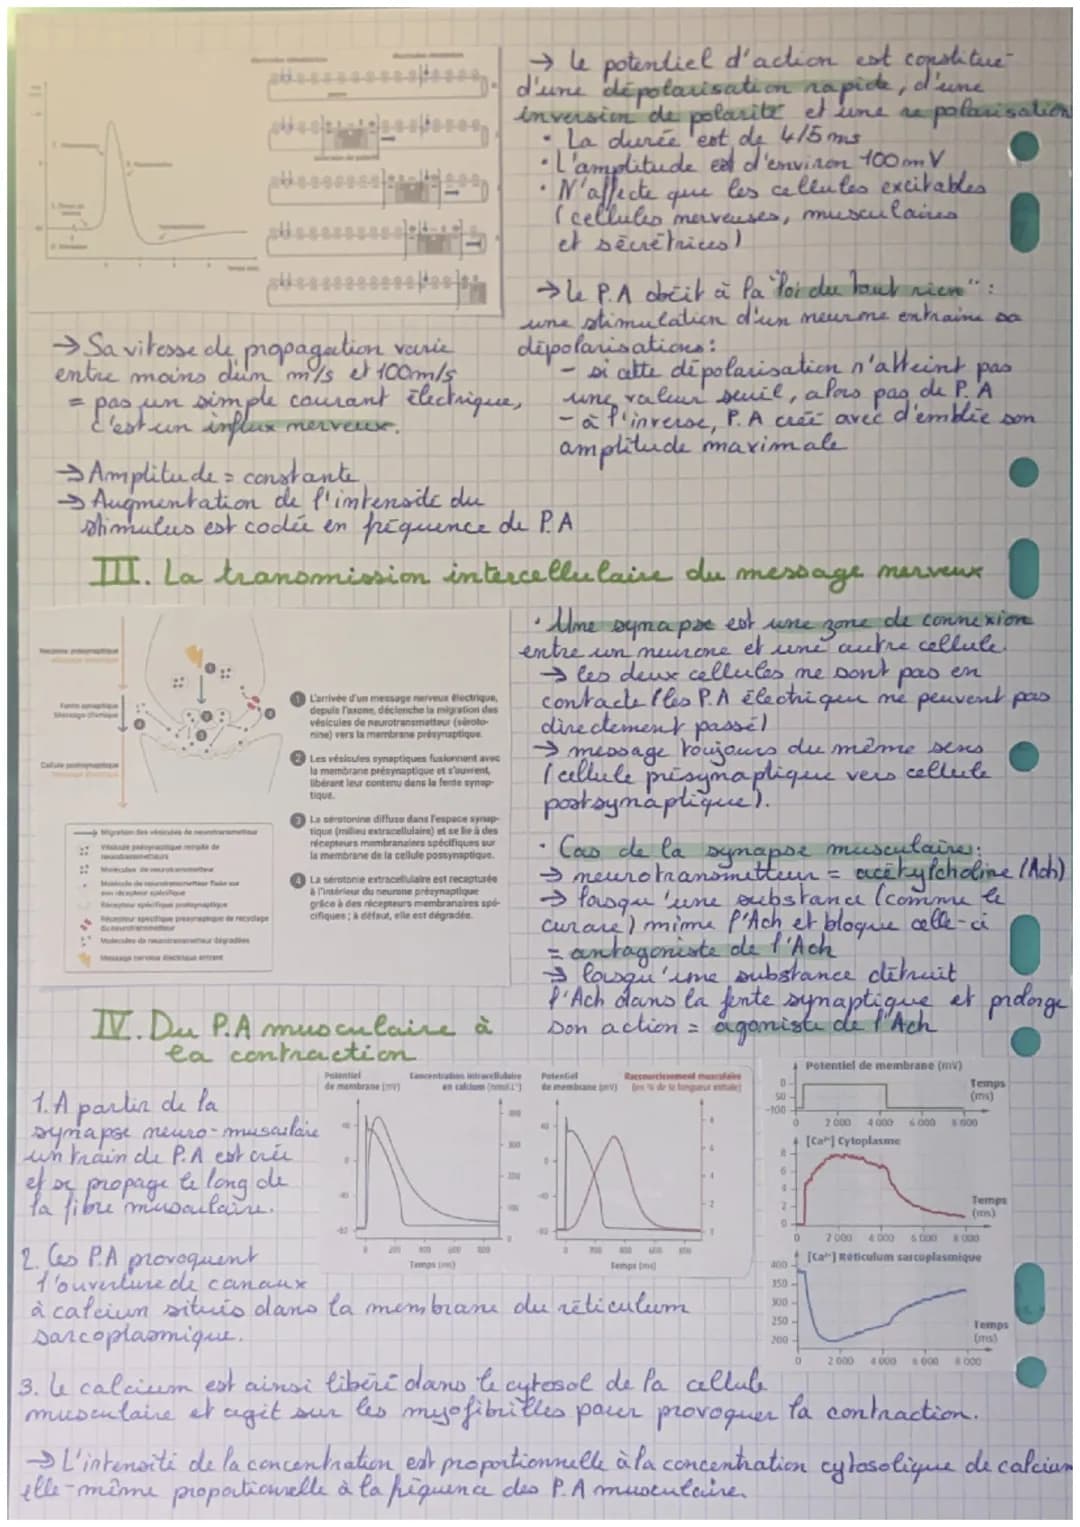 → Le potentiel d'action est constitué
d'une dépolarisation rapide, d'une
inversion de polarité et une repolarisation
• La durée est de 4/5 ms
• L'amplitude est d'environ 100 mV
• N'affecte que les cellules excitables
(cellules nerveuses, musculaires
et sécrétrices)
→ Le P.A obéit à la "loi du tout rien" :
une stimulation d'un neurone entraine sa
dépolarisations :
- si cette dépolarisation n'atteint pas
une valeur seuil, alors pas de P.A
- à l'inverse, P.A créé avec d'emblée son
amplitude maximale
→ Sa vitesse de propagation varie
entre moins d'un m/s et 100m/s
= pas un simple courant électrique,
c'est un influx nerveux.
→ Amplitude = constante
→ Augmentation de l'intensité du
stimulus est codée en fréquence de P.A
III. La transmission intercellulaire du message nerveux
Neurone présynaptique
Fente synaptique
Message chimique
Cellule postsynaptique
1 L'arrivée d'un message nerveux électrique,
depuis l'axone, déclenche la migration des
vésicules de neurotransmetteur (séroto-
nine) vers la membrane présynaptique.
2 Les vésicules synaptiques fusionnent avec
la membrane présynaptique et s'ouvrent,
libérant leur contenu dans la fente synap-
tique.
3 La sérotonine diffuse dans l'espace synap-
tique (milieu extracellulaire) et se lie à des
récepteurs membranaires spécifiques sur
la membrane de la cellule possynaptique.
4 La sérotonine extracellulaire est recapturée
à l'intérieur du neurone présynaptique
grâce à des récepteurs membranaires spé-
cifiques ; à défaut, elle est dégradée.
Migration des vésicules de neurotransmetteur
Vésicule présynaptique remplie de
neurotransmetteurs
Molécules de neurotransmetteur
Molécule de neurotransmetteur fixée sur
son récepteur spécifique
Récepteur spécifique postsynaptique
Récepteur spécifique présynaptique de recyclage
du neurotransmetteur
Molécules de neurotransmetteur dégradées
Message nerveux électrique entrant
• Une synapse est une zone de connexion
entre un neurone et une autre cellule.
→ les deux cellules ne sont pas en
contacte (les P.A électrique ne peuvent pas
directement passé)
→ message toujours du même sens
(cellule présynaptique vers cellule
postsynaptique).
• Cas de la synapse musculaire :
→ neurotransmetteur = acétylcholine (Ach)
→ lorsqu'une substance (comme le
curare) mime l'Ach et bloque celle-ci
= antagoniste de l'Ach
→ lorsqu'une substance détruit
l'Ach dans la fente synaptique et prolonge
son action = agoniste de l'Ach
IV. Du P.A musculaire à
la contraction
1. A partir de la
synapse neuro-musculaire
un train de P.A est créé
et se propage le long de
la fibre musculaire.
2. Ces P.A provoquent
l'ouverture de canaux
à calcium situés dans la membrane du réticulum
sarcoplasmique.
Potentiel
de membrane (mV)
Concentration intracellulaire
en calcium (nmol.L⁻¹)
Temps (ms)
Potentiel
de membrane (mV)
Raccourcissement musculaire
(en % de la longueur initiale)
Temps (ms)
Potentiel de membrane (mV)
0
50
-100
Temps
(ms)
0 2 000 4 000 6 000 8 000
[Ca²⁺] Cytoplasme
8
6
4
2
0
Temps
(ms)
0 2 000 4 000 6 000 8 000
[Ca²⁺] Réticulum sarcoplasmique
400
350
300
250
200
Temps
(ms)
0 2 000 4 000 6 000 8 000
3. Le calcium est ainsi libéré dans le cytosol de la cellule
musculaire et agit sur les myofibrilles pour provoquer la contraction.
→ L'intensité de la concentration est proportionnelle à la concentration cytosolique de calcium
elle-même proportionnelle à la fréquence des P.A musculaire.